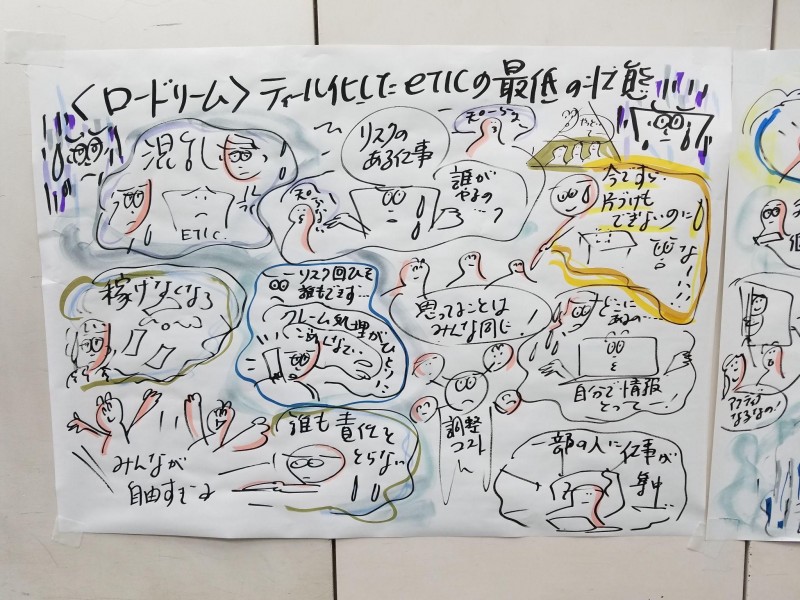 <ロードリーム> ティール化したeTICの最低の状態
混乱
ETIC.
リスクの
ある仕事
誰が
やるの
…?
今ですら…
片づけも
できないのに
稼げなくなる
リスク回ひを
誰もできず…
クレーム処理が
ごめんなさい
思ってることは
みんな同じ!
自分で情報
とって!
調整
コスト
みんなが
自由すぎる
誰も責任を
とらない
一部の人に
仕事が
集中
アクティブ
なるなの!